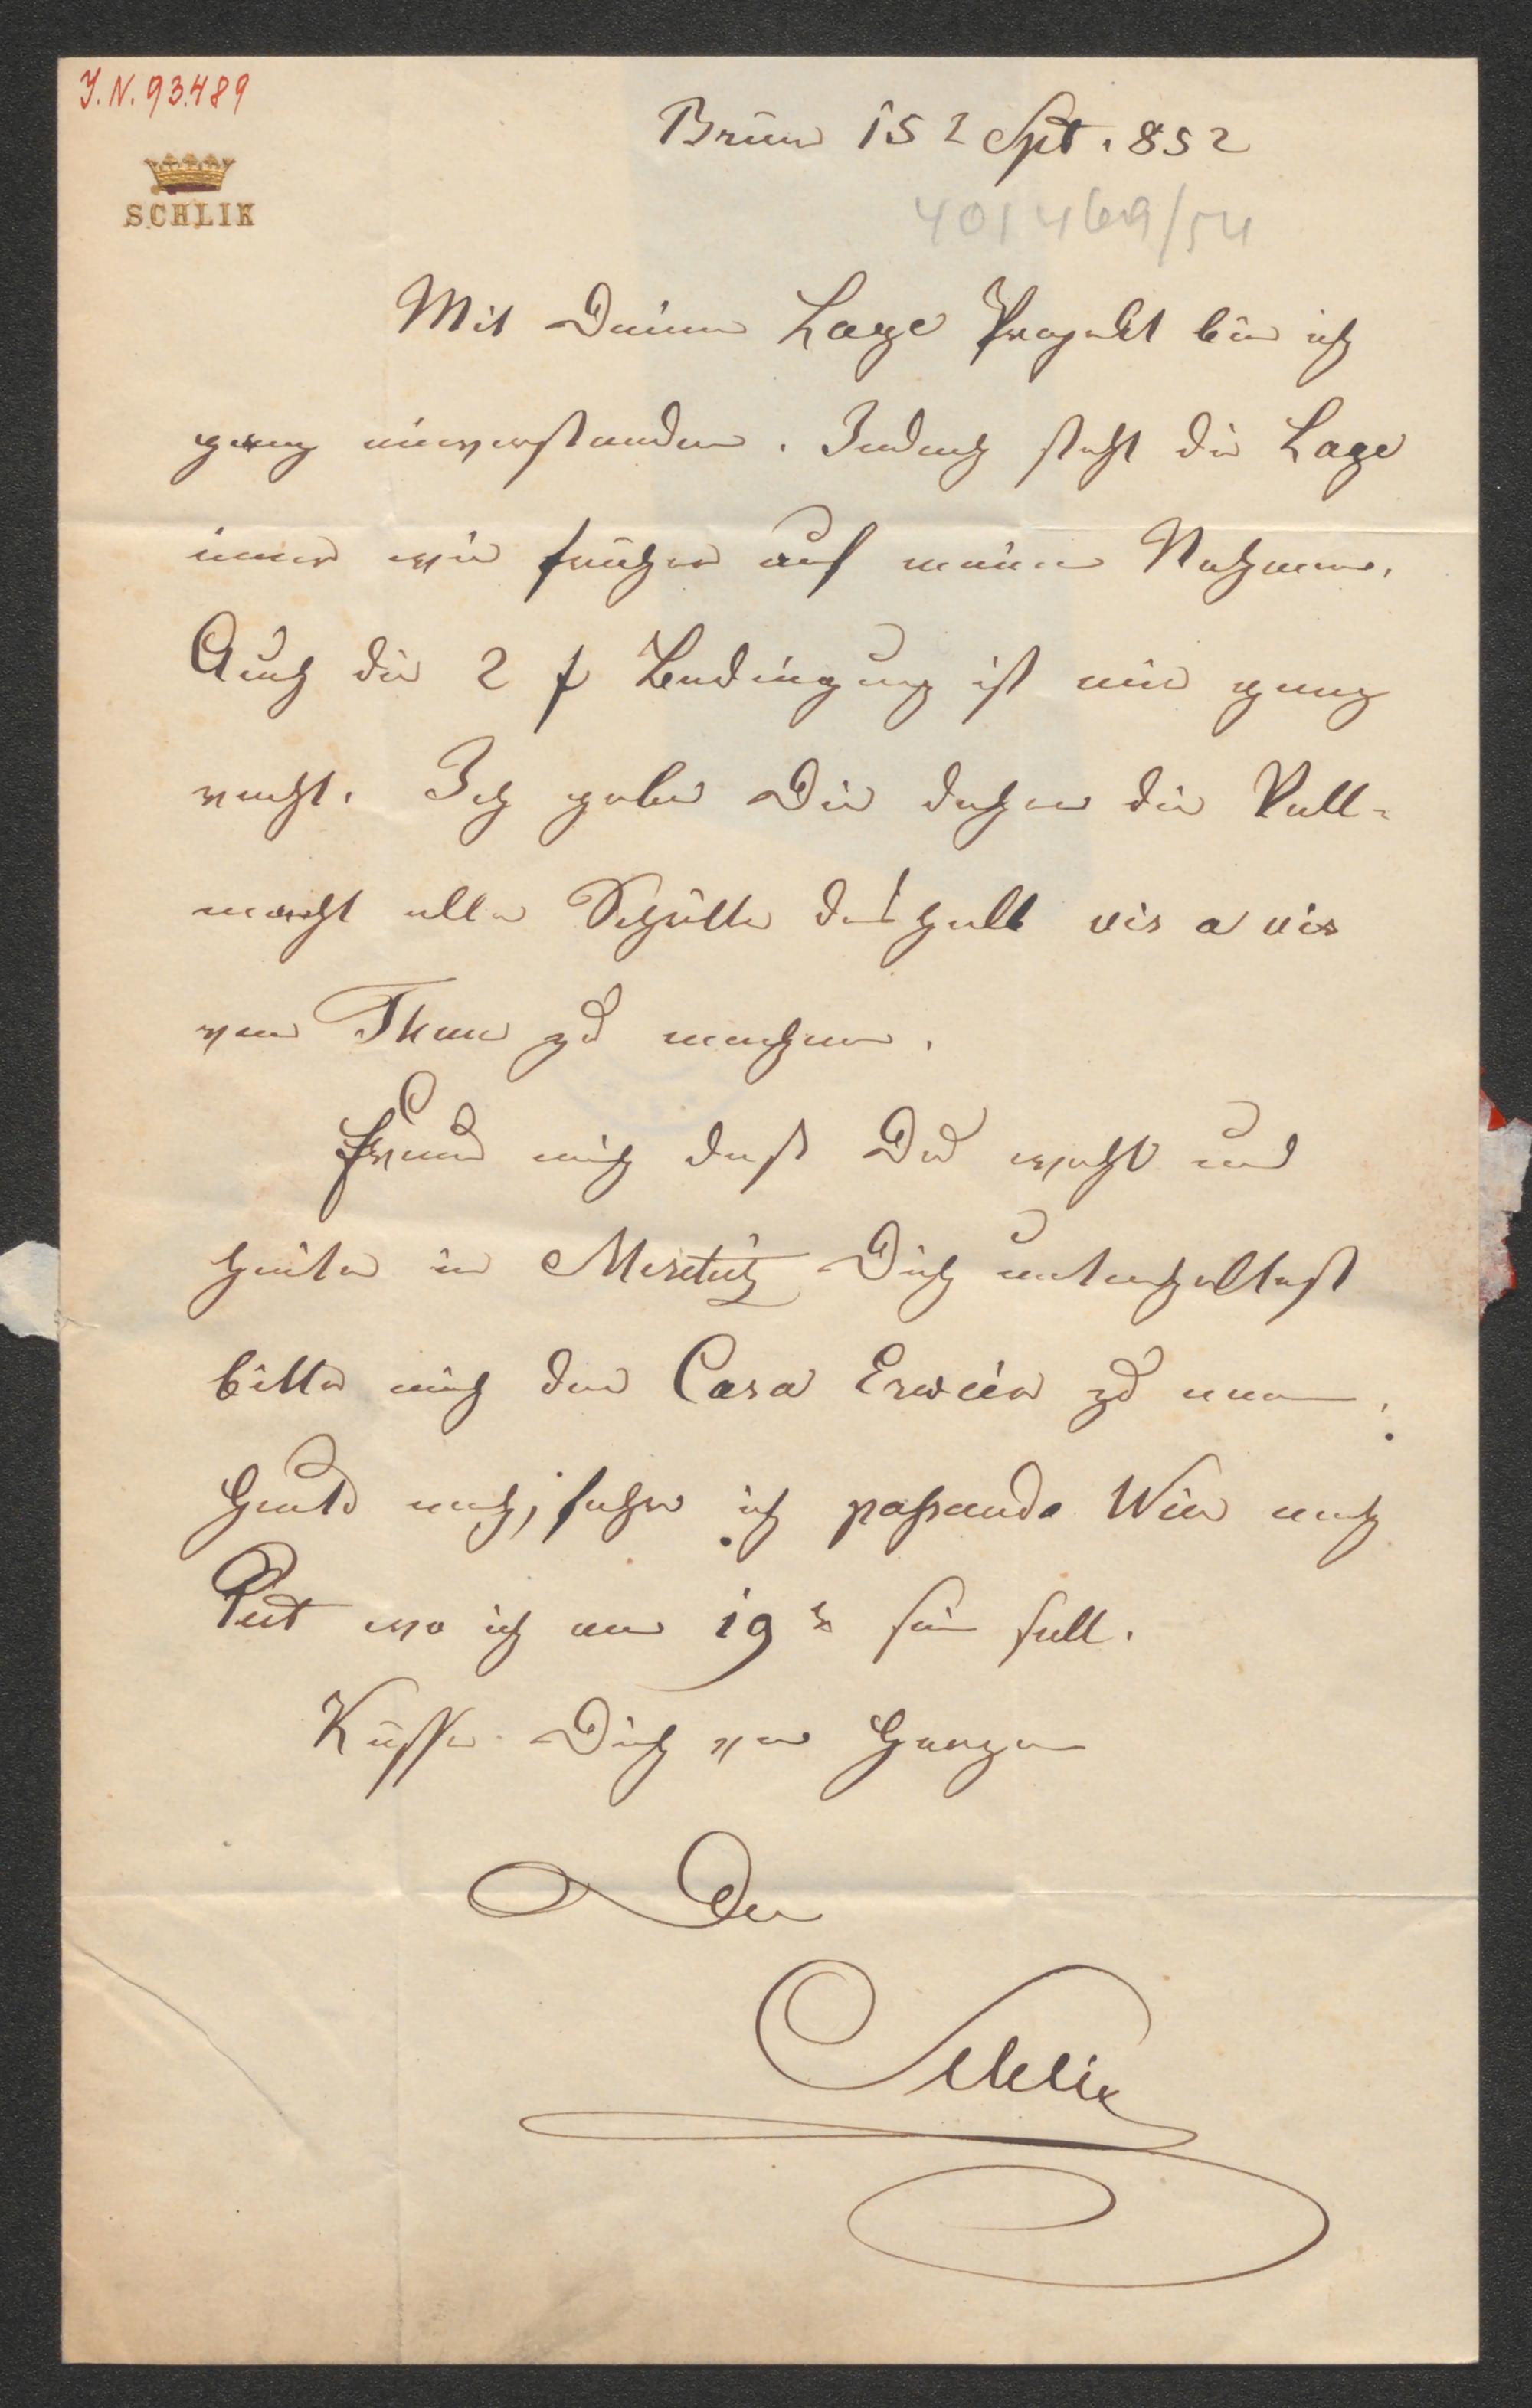 J.N. 93.489
SCHLIK
Brünn 15 2 Spt. 852
401469/54
Mit Deinem Loge Projekt bin ich
ganz einverstanden. Jedoch steht die Loge
immer wie früher auf meinen Nahmen.
Auch die 2 f Bedingung ist mir ganz
recht. Ich gebe Dir daher die Voll-
macht alle Schritte deshalb vis a vis
von Thun zu machen.
Freut mich daß Du wohl und
heiter in Dich unterhaltest
bitte mich der Casa Erwein zu
Heute noch, fahre ich passando Wien nach
wo ich am 19 sein soll.
Küsse Dich von Herzen
Dein
Schlik